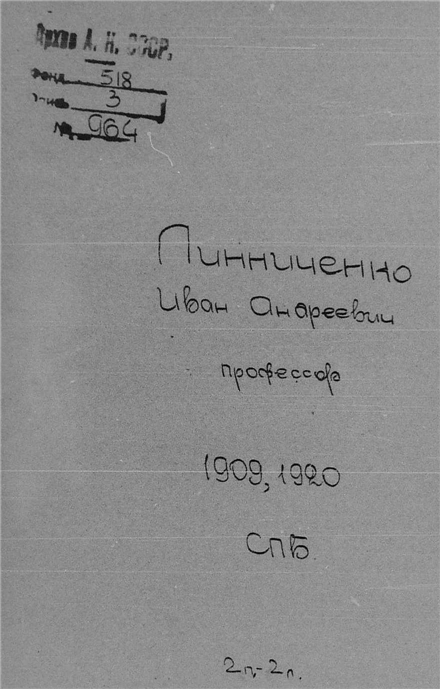 Архив А. Н. СССР.
Фонд 518
Опись 3
№ 964
Линниченко
Иван Андреевич
профессор
1909, 1920
СПБ.
2п.-2л.